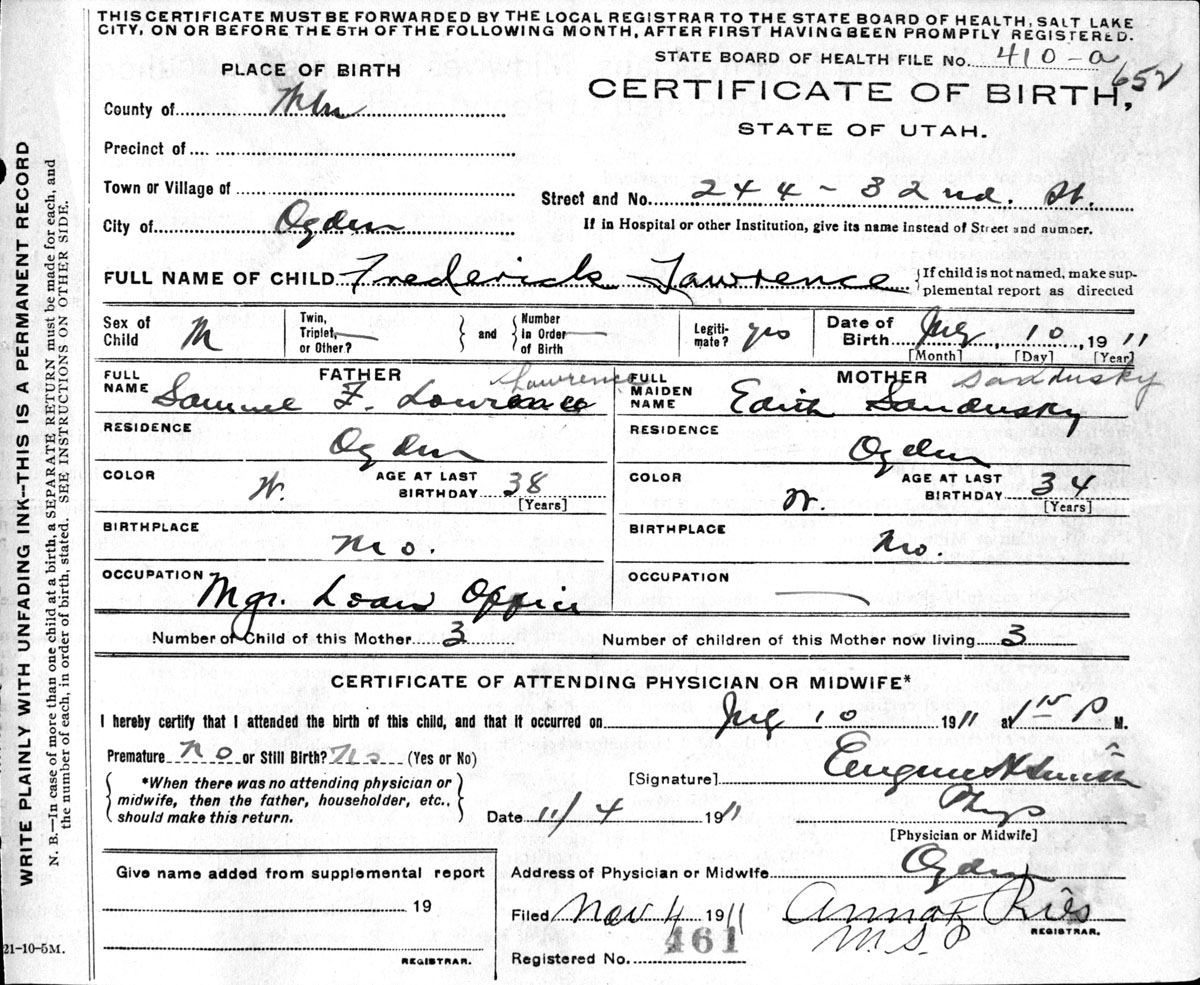 THIS CERTIFICATE MUST BE FORWARDED BY THE LOCAL REGISTRAR TO THE STATE BOARD OF HEALTH, SALT LAKE
CITY, ON OR BEFORE THE 5TH OF THE FOLLOWING MONTH, AFTER FIRST HAVING BEEN PROMPTLY REGISTERED.
STATE BOARD OF HEALTH FILE No. 410-a
652
PLACE OF BIRTH
CERTIFICATE OF BIRTH,
STATE OF UTAH.
County of
Precinct of
Town or Village of
Street and No. 244-32nd. St.
City of Ogden
If in Hospital or other Institution, give its name instead of Street and number.
FULL NAME OF CHILD Frederick Lawrence
If child is not named, make sup-
plemental report as directed
Sex of Child M
Twin, Triplet, or Other?
and
Number in Order of Birth
Legiti-mate? yes
Date of Birth 10, 1911
[Month] [Day] [Year]
FATHER
FULL NAME Samuel F. Lawrence
Lawrence
RESIDENCE Ogden
COLOR W.
AGE AT LAST BIRTHDAY 38
[Years]
BIRTHPLACE Mo.
OCCUPATION Mgr. Loan Office
MOTHER
Sandusky
FULL MAIDEN NAME Edith Sandusky
RESIDENCE Ogden
COLOR W.
AGE AT LAST BIRTHDAY 34
[Years]
BIRTHPLACE Mo.
OCCUPATION
Number of Child of this Mother 3
Number of children of this Mother now living 3
CERTIFICATE OF ATTENDING PHYSICIAN OR MIDWIFE*
I hereby certify that I attended the birth of this child, and that it occurred on 10 1911 at P M.
Premature no or Still Birth? No (Yes or No)
*When there was no attending physician or
midwife, then the father, householder, etc.,
should make this return.
[Signature] Eugene H Smith
Date 11/4 1911
Phys
[Physician or Midwife]
Give name added from supplemental report
19
REGISTRAR.
Address of Physician or Midwife Ogden
Filed Nov 4 1911
Anna F
REGISTRAR.
Registered No. 461
21-10-5M.
WRITE PLAINLY WITH UNFADING INK--THIS IS A PERMANENT RECORD
N. B.—In case of more than one child at a birth, a SEPARATE RETURN must be made for each, and
the number of each, in order of birth, stated. SEE INSTRUCTIONS ON OTHER SIDE.